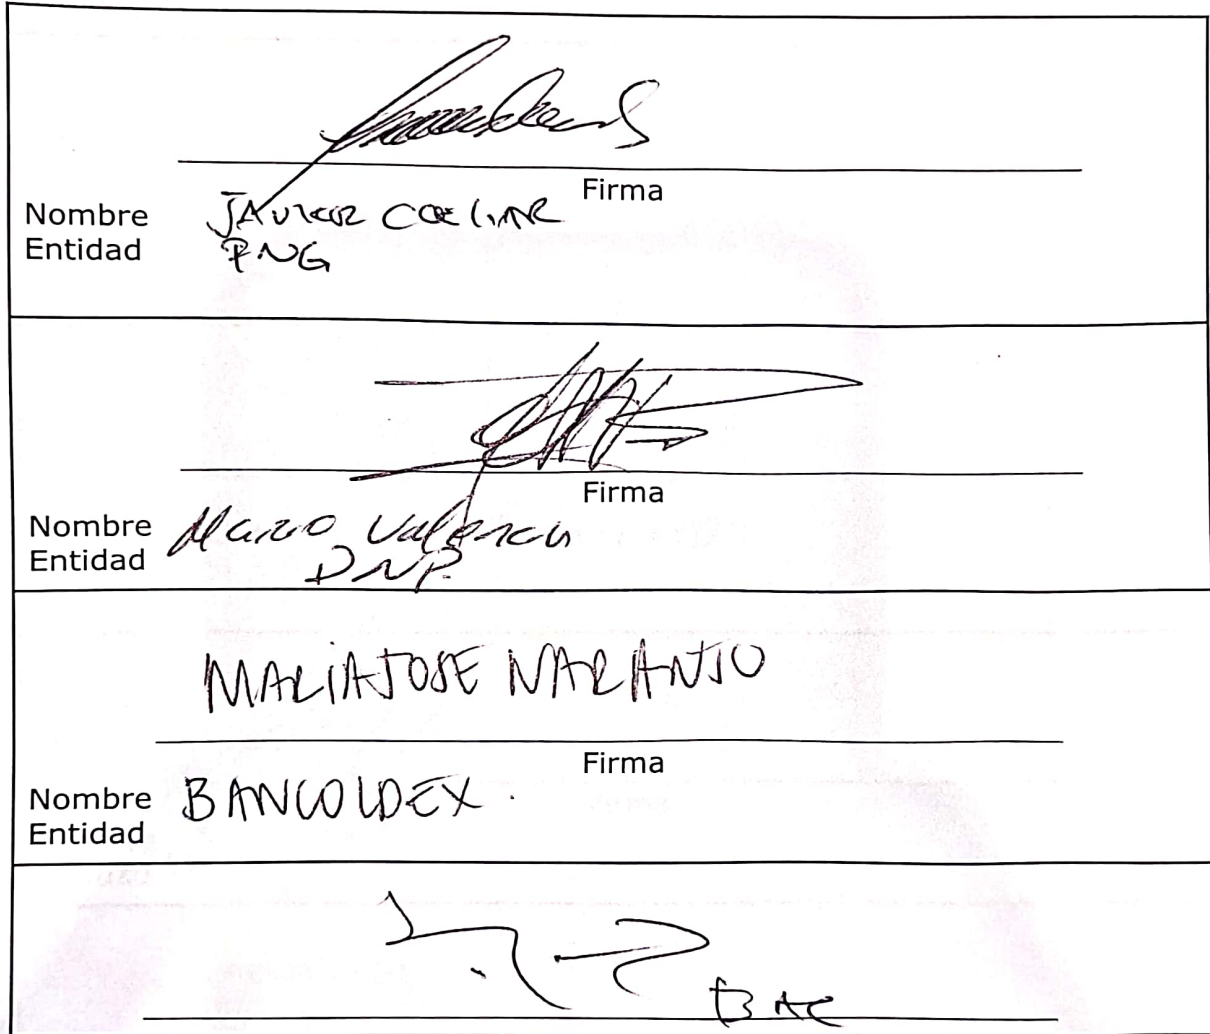 Firma
Nombre JAVIER CUELLAR
Entidad PNG
Firma
Nombre Mario Valencia
Entidad DNP.
MARIA JOSE NARANJO
Firma
Nombre BANCOLDEX.
Entidad
BAC